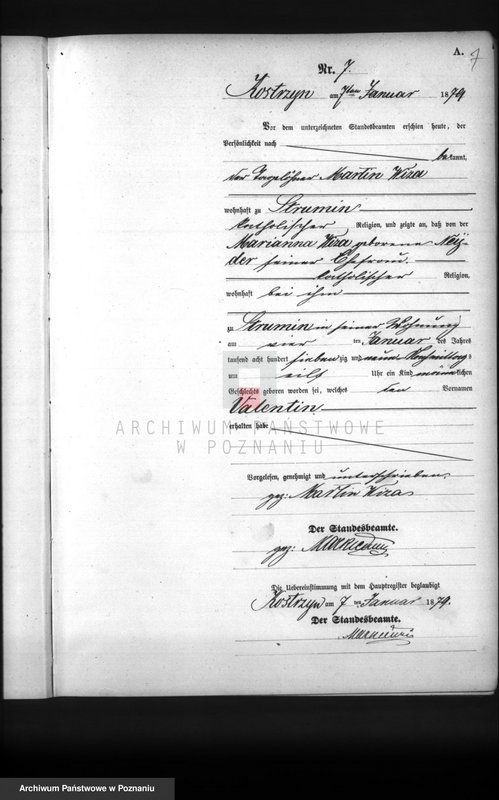 A.
7
Nr. 7.
Kostrzyn am 7ten Januar 1879
Vor dem unterzeichneten Standesbeamten erschien heute, der
Persönlichkeit nach
bekannt,
der Tagelöhner Martin Wiza
wohnhaft zu Strumin
katholischer Religion, und zeigte an, daß von der
Marianna Wiza geborene Ney-
der seiner Ehefrau
katholischer Religion,
wohnhaft bei ihm
zu Strumin in seiner Wohnung
am vier ten Januar des Jahres
tausend acht hundert siebenzig und neun Vormittags
um eilf Uhr ein Kind männlichen
Geschlechts geboren worden sei, welches den Vornamen
Valentin
erhalten habe
ARCHIWUM PAŃSTWOWE
W POZNANIU
Vorgelesen, genehmigt und unterschrieben
gez: Martin Wiza
Der Standesbeamte.
gez:
Die Uebereinstimmung mit dem Hauptregister beglaubigt
Kostrzyn am 7 ten Januar 1879.
Der Standesbeamte.
Archiwum Państwowe w Poznaniu